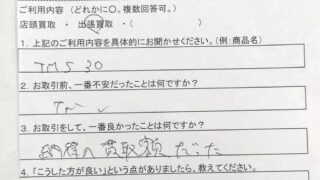 ご利用内容 (どれかに〇。複数回答可。)
店頭買取 ・ 出張買取 ・ (
1. 上記のご利用内容を具体的にお聞かせください。(例:商品名)
TMS 30
2. お取引前、一番不安だったことは何ですか?
3. お取引をして、一番良かったことは何ですか?
納得の買取額だった
4. 「こうした方が良い」という点がありましたら、教えてください。